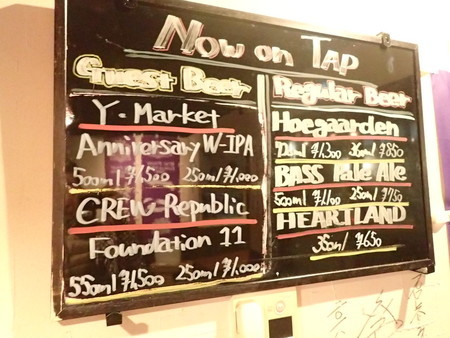 Now on TAP
Guest Beer
Y·Market
Anniversary W-IPA
500ml ¥1,500 250ml ¥1,000
CREW Republic
Foundation 11
550ml ¥1,500 250ml ¥1,000
Regular Beer
Hoegaarden
¥1,300 ¥850
BASS Pale Ale
500ml ¥1,100 250ml ¥750
HEARTLAND
350ml ¥650